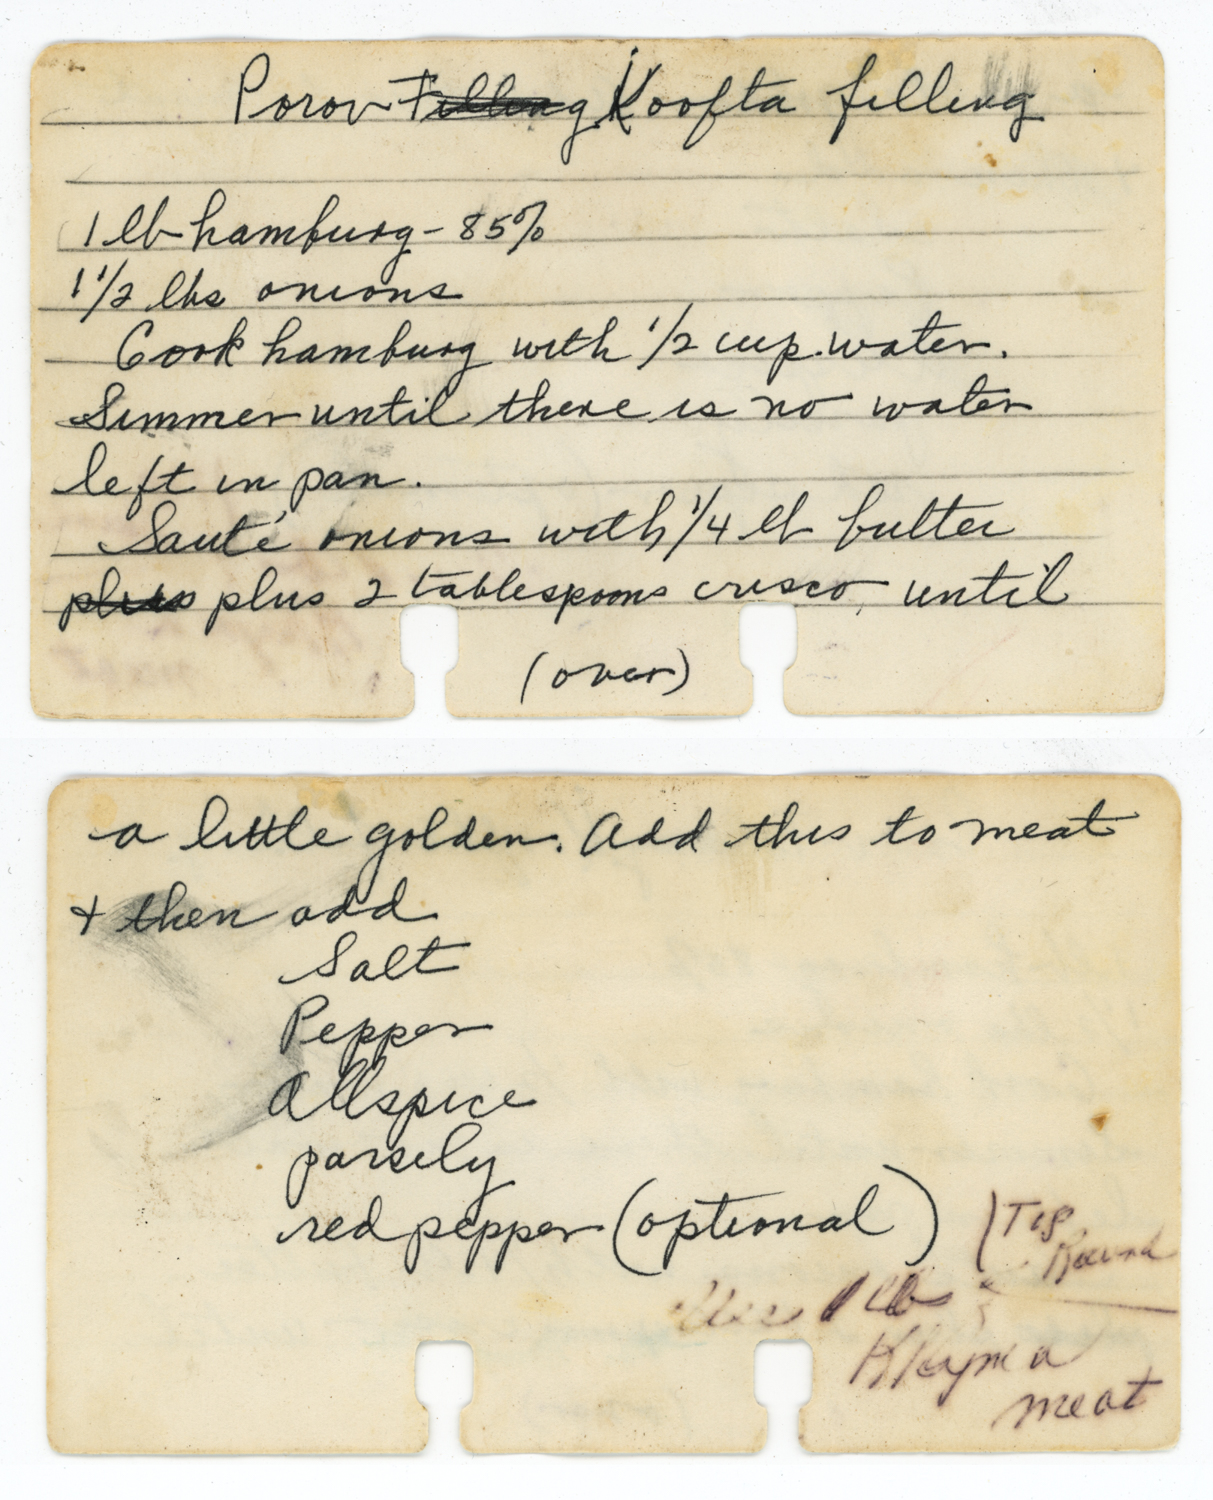 Porov Filling Koofta filling
1 lb hamburg - 85%
1 1/2 lbs onions
Cook hamburg with 1/2 cup water.
Simmer until there is no water
left in pan.
Sauté onions with 1/4 lb butter
plus plus 2 tablespoons crisco until
(over)
a little golden. Add this to meat
+ then add
Salt
Pepper
Allspice
parsely
red pepper (optional)
(Top
Round
Use 1 lb
Kheyma
meat